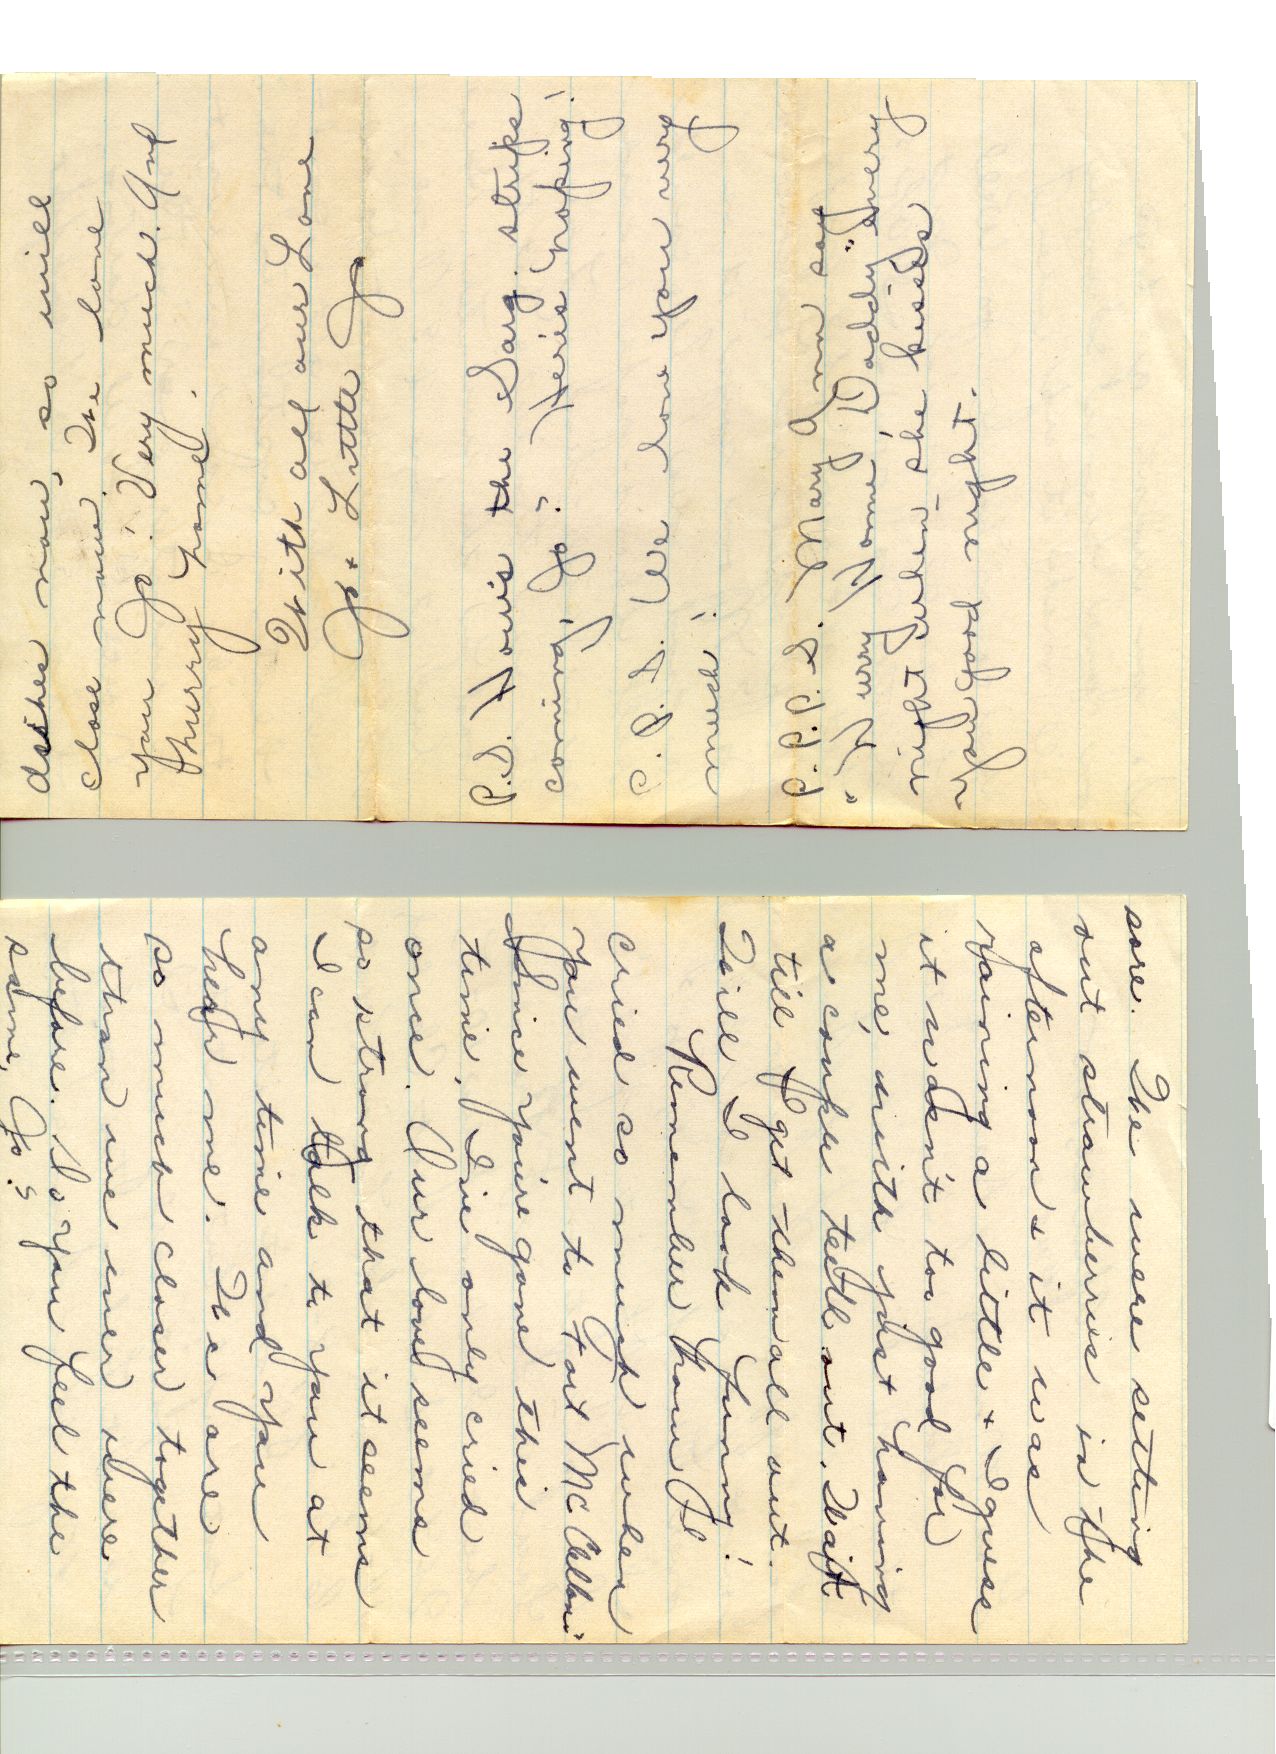 sore. We were setting
out strawberries in the
afternoon & it was
raining a little & I guess
it wasn't too good for
me, with just having
a couple teeth out. Wait
till I get them all out.
Will I look funny!
Remember how I
cried so much when
you went to Fort McClellan?
Since you're gone this
time, I've only cried
once. Our love seems
so strong that it seems
I can talk to you at
any time and you
hear me. We are
so much closer together
than we ever were
before. Do you feel the
same, Jo?
dishes now, so will
close now. We love
you Jo! Very much. And
hurry home.
With all our Love
Jo & Little Jo
P.S. How's the Sarg. strips
coming, Jo? Here's hoping!
P.P.S. We love you very
much!
P.P.P.S. Mary Ann says
"Hurry Home Daddy" every
night when she kisses
your good night.